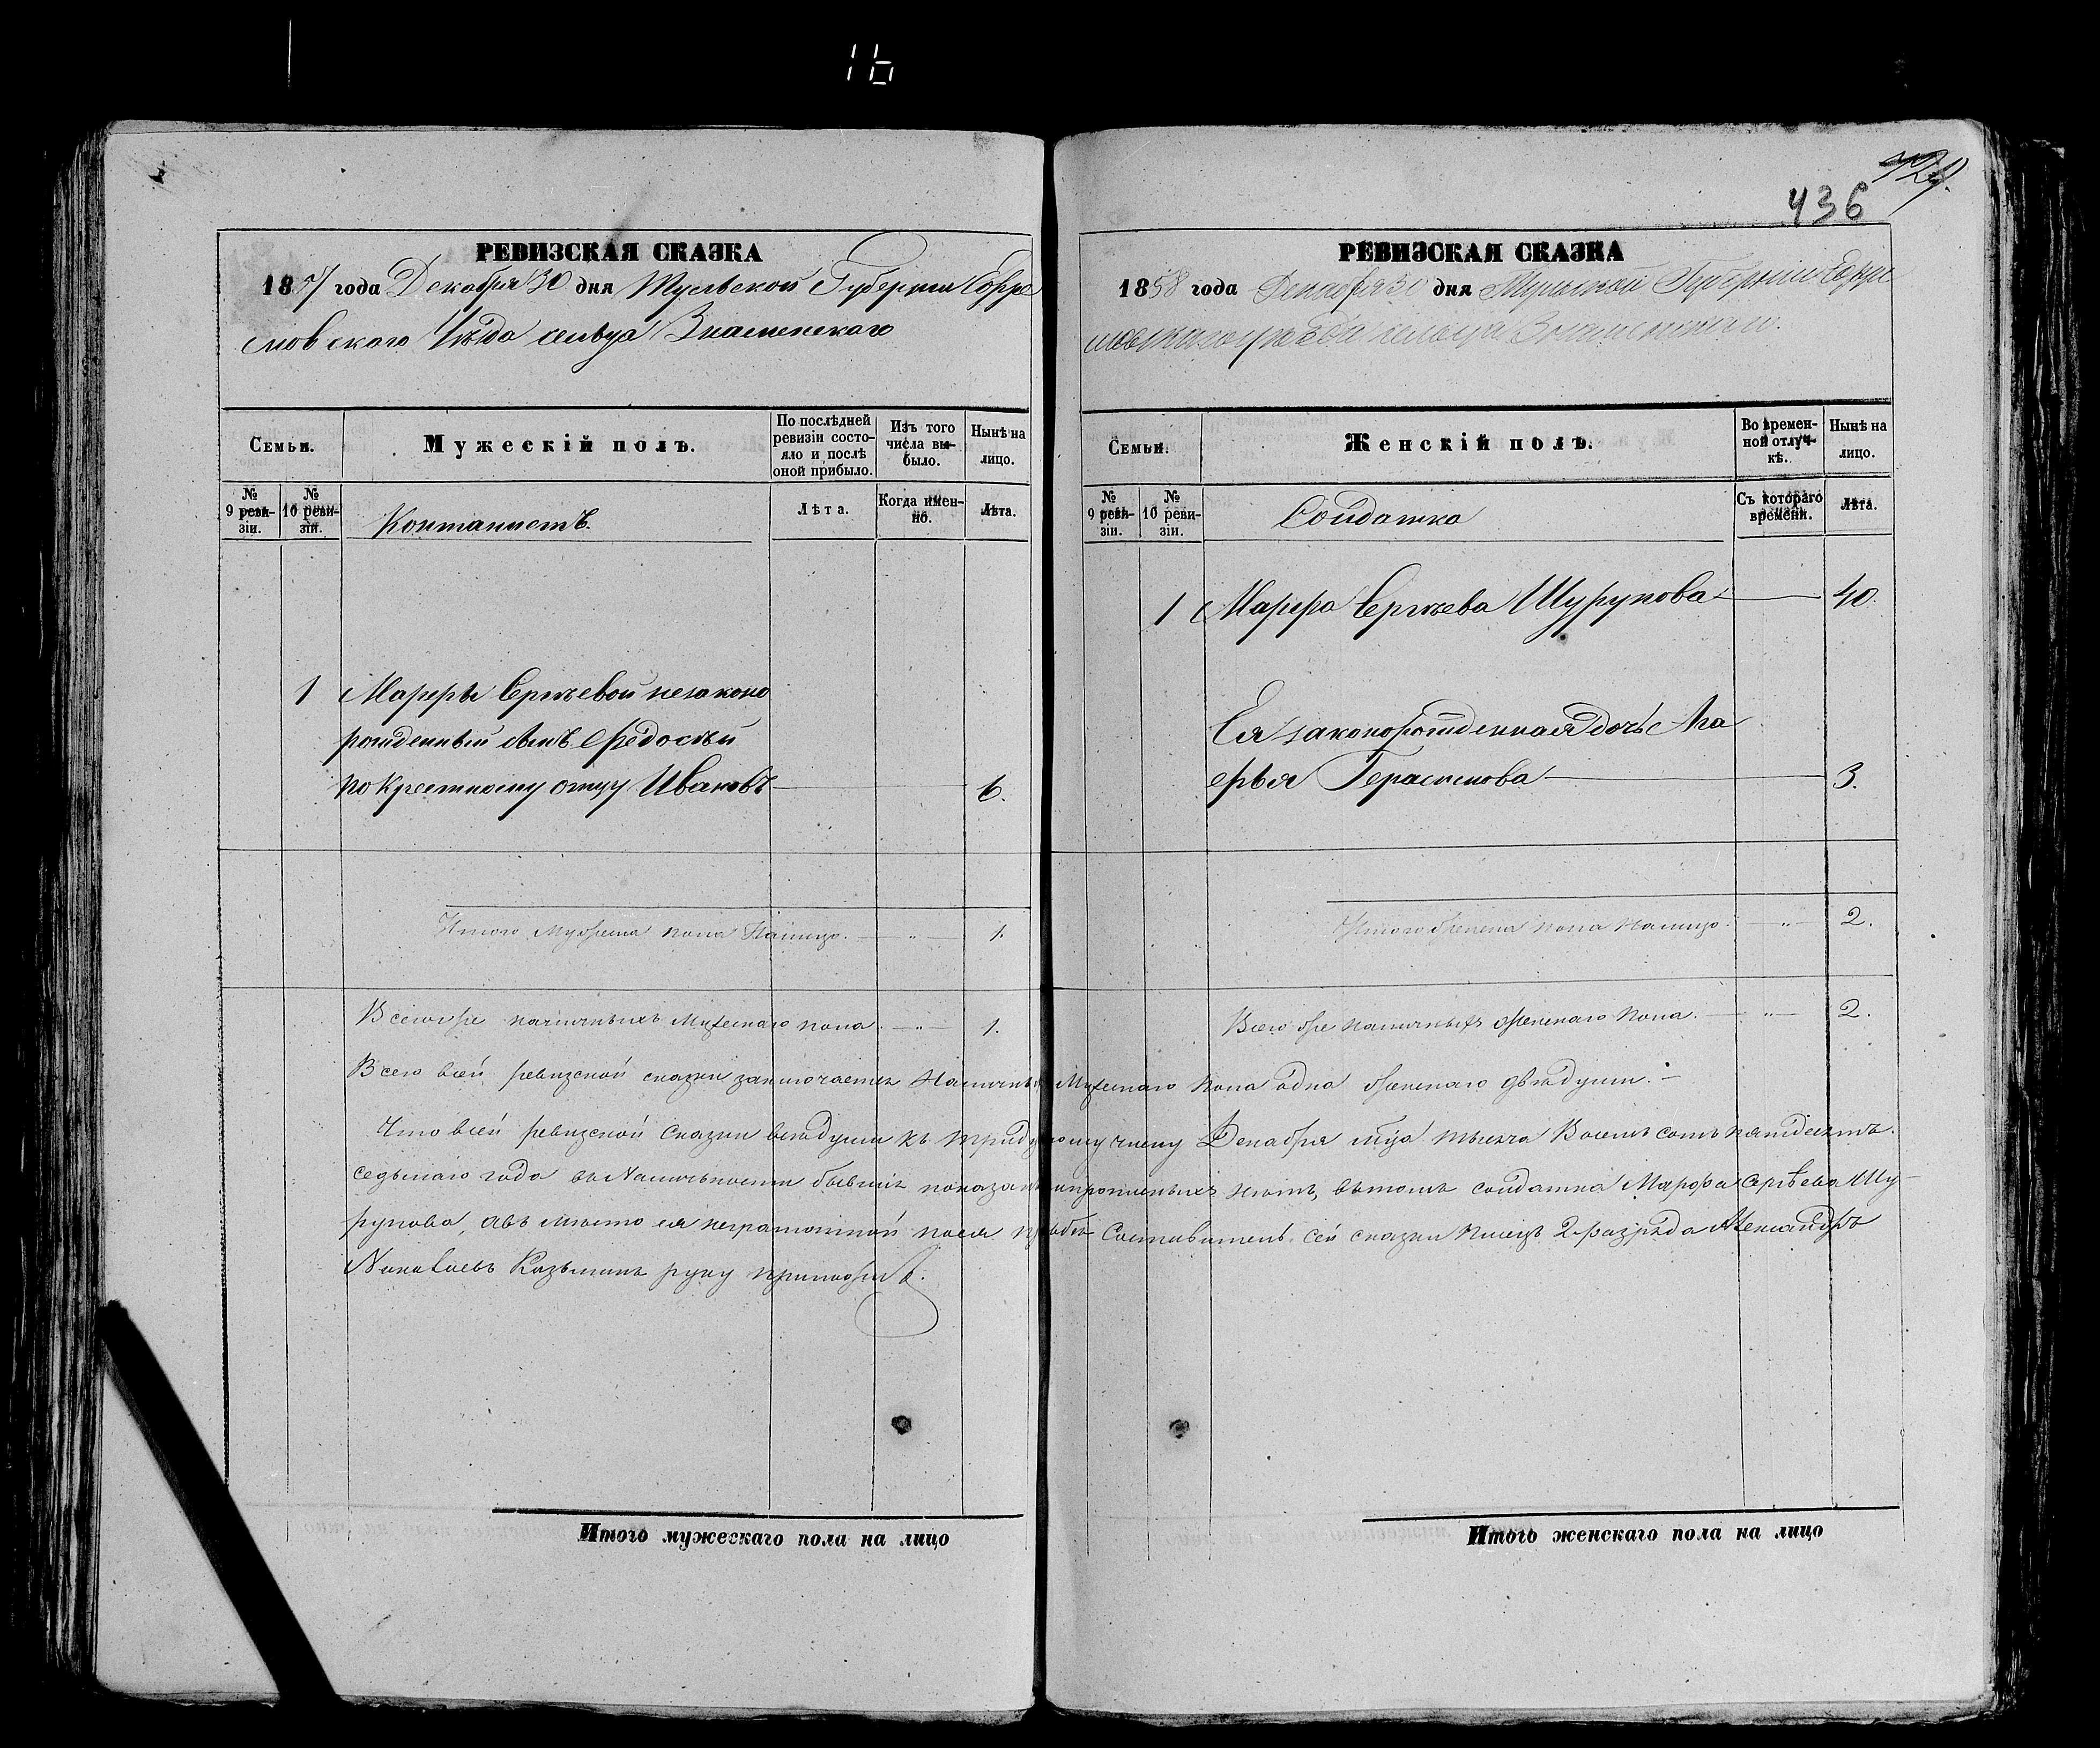 16
РЕВИЗСКАЯ СКАЗКА
1857 года Декабря 30 дня Тульской Губернiи Ефре
мовского Уѣзда сельца Знаменского
Семьи.
Мужескiй полъ.
По послѣдней ревизiи состо-яло и послѣ оной прибыло.
Изъ того числа вы-было.
Нынѣ на лицо.
№ 9 реви-зiи.
№ 10 реви-зiи.
Кантанистъ.
Лѣта.
Когда имен-но.
Лѣта.
1 Марѳы Сергѣевой незаконо
рожденный сынъ Ѳедосѣй
по крестному отцу Ивановъ 6.
Итого Мужеска пола Налицо. — „ — 1.
Всего же наличныхъ Мужескаго пола. — „ — 1.
436
729.
РЕВИЗСКАЯ СКАЗКА
1858 года Декабря 30 дня Тульской Губернiи Ефре
мовскаго уѣзда сельца Знаменскаго.
Семьи.
Женскiй полъ.
Во времен-ной отлуч-кѣ.
Нынѣ на лицо.
№ 9 реви-зiи.
№ 10 реви-зiи.
Солдатка
Съ котораго времени.
Лѣта.
1 Марѳа Сергѣева Шурупова 40.
Ея законорожденная дочь Ма
рья Герасимова 3.
Итого женска пола налицо. — „ — 2.
Всего же наличныхъ женскаго пола. — „ — 2.
Всего всей ревизской сказки заключается Наличныхъ Мужескаго пола одна женскаго двѣ души. —
Что всей ревизской сказки всѣ души къ тридцатому числу Декабря тысяча Восемь сотъ пятдесятъ
седьмаго года въ Наличьности бывшiя показаны и прописныхъ нѣтъ, въ томъ солдатка Марѳа Сергѣева Шу-
рупова, а въ мѣсто ея неграмотной по ея прозбѣ Составитель сей сказки писецъ 2 разряда Александръ
Николаевъ Козьминъ руку приложилъ.
Итого мужескаго пола на лицо
Итого женскаго пола на лицо